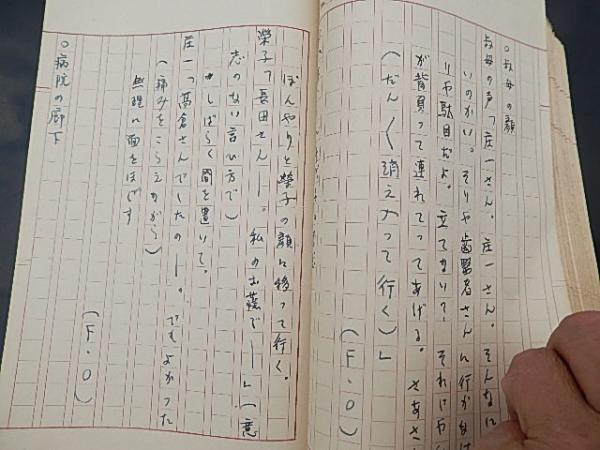 ○叔母の顔
叔母の声「庄一さん。庄一さん。そんなに
いのかい。そりや歯医者さんに行かなけ
りや駄目だよ。立てない？それにや
が背負って連れてってあげる。さあさ
（だん〱消え入って行く）」
（F・O）
ぼんやりと榮子の顔に移って行く。
榮子「長田さん―。私のお蔭で―」（意
志のない言ひ方で）
しばらく間を置いて。
庄一「高倉さんでしたの―。でもよかった
（痛みをこらえながら）
無理に面をほぐす
（F・O）
○病院の廊下